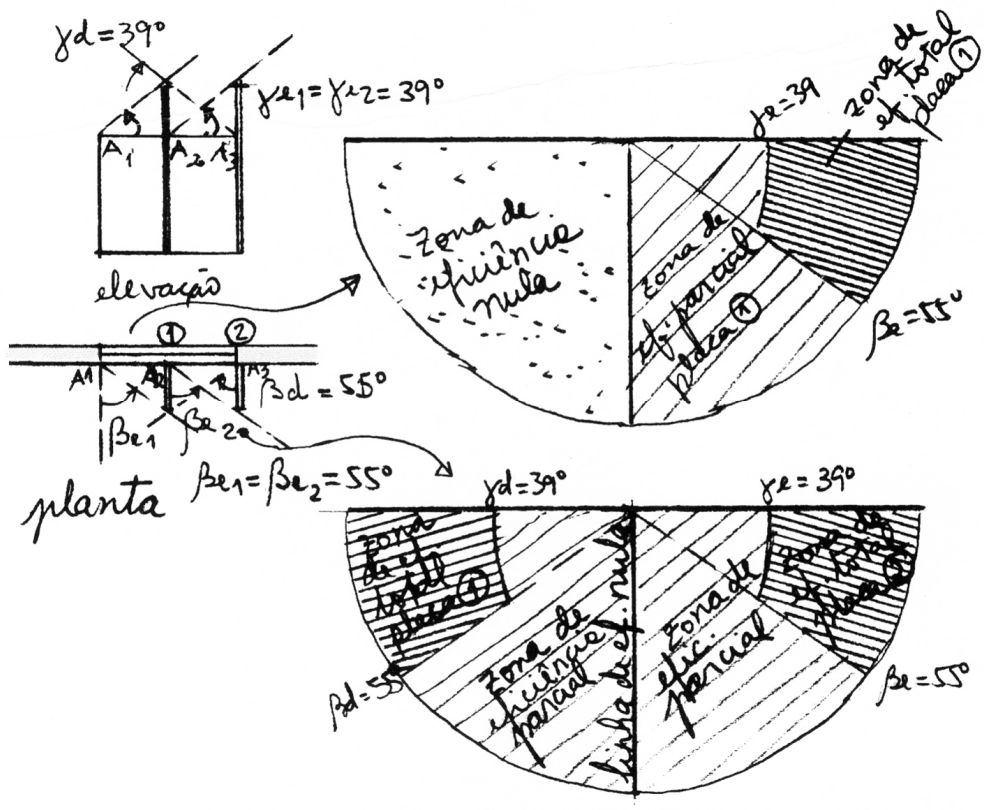 γd=39°
γe1=γe2=39°
A1 A2 A3
elevação
1 2
A1 A2 A3
βd=55°
βe1 βe2
βe1=βe2=55°
planta
γe=39
zona de
ef. total
placa 1
zona de
eficiência
nula
zona de
ef. parcial
placa 1
βe=55°
γd=39°
γe=39°
zona
de ef
total
placa 1
zona de
eficiência
parcial
linha de ef. nula
zona de
efic.
parcial
zona de
ef. total
placa
βd=55
βe=55°